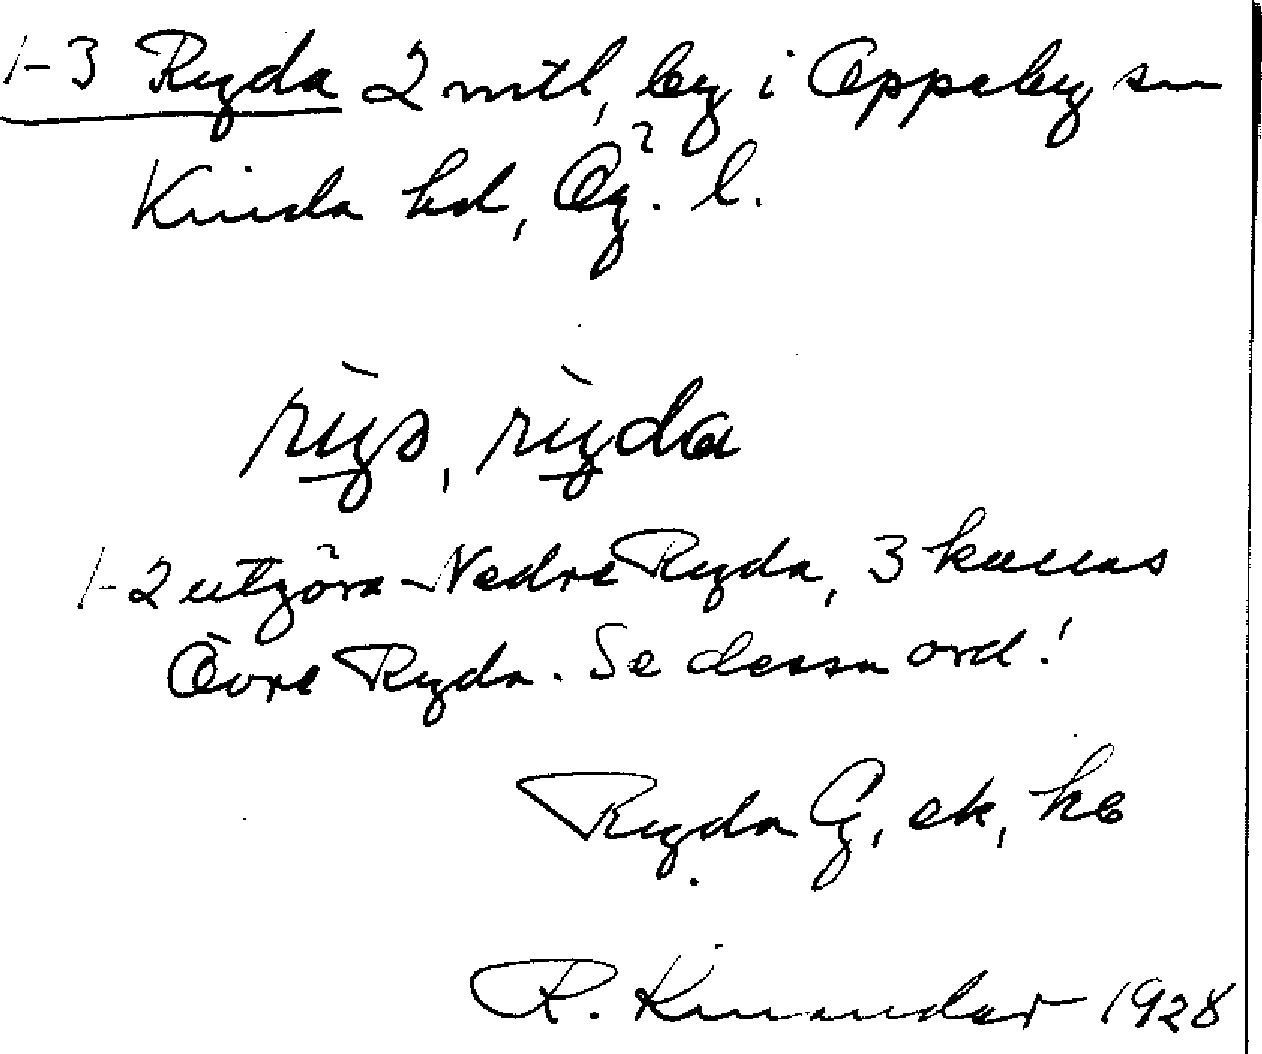 1-3 Ryda 2 mtl, by i Oppeby sn
Kinda hd, Ög. l.
rys, ryda
1-2 utgöra Nedre Ryda, 3 kallas
Övre Ryda. Se dessa ord!
Ryda G, ek, ka
R. Kinander 1928